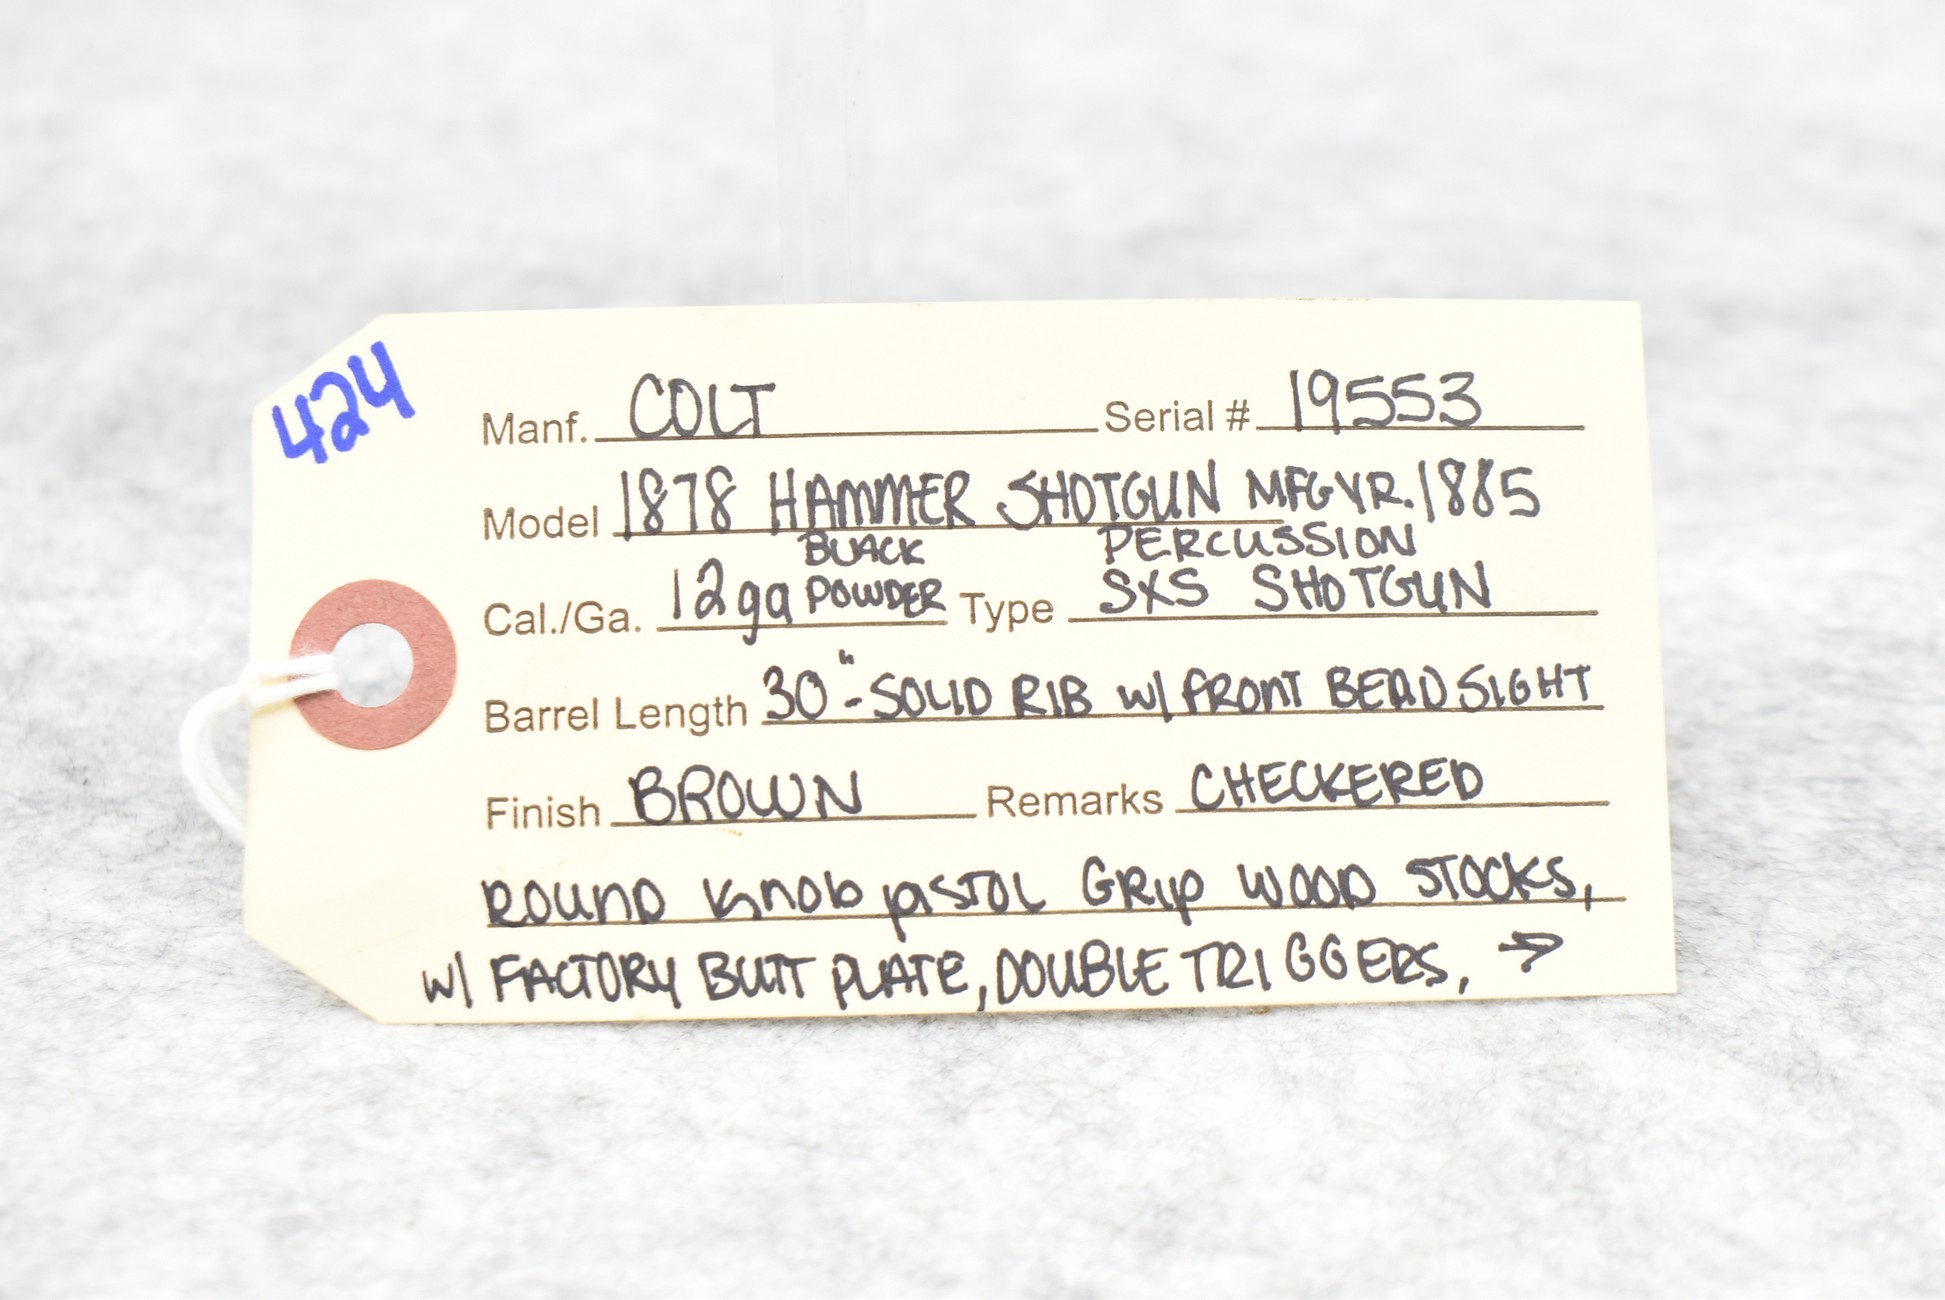 424
Manf. COLT Serial # 19553
Model 1878 HAMMER SHOTGUN MFG YR. 1885
BLACK PERCUSSION
Cal./Ga. 12ga POWDER Type SXS SHOTGUN
Barrel Length 30"- SOLID RIB w/ FRONT BEAD SIGHT
Finish BROWN Remarks CHECKERED
ROUND Knob pISTOL GRIp WOOD STOCKS,
w/ FACTORY BUTT PLATE, DOUBLE TRIGGERS, →